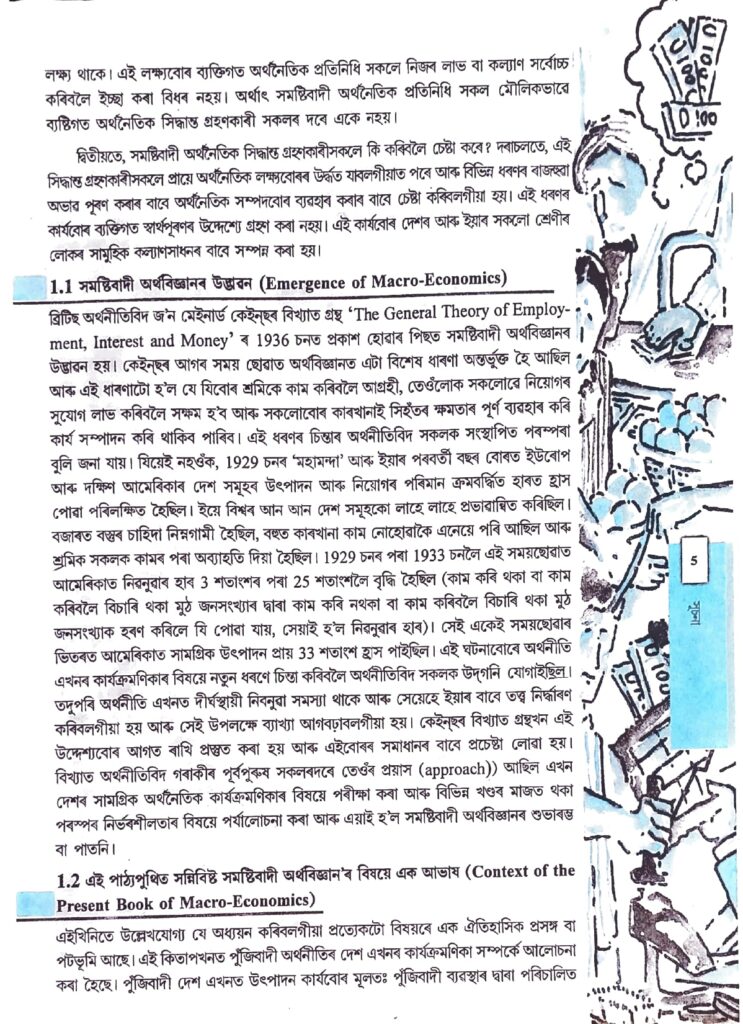 লক্ষ্য থাকে। এই লক্ষ্যবোৰ ব্যক্তিগত অৰ্থনৈতিক প্ৰতিনিধি সকলে নিজৰ লাভ বা কল্যাণ সৰ্বোচ্চ
কৰিবলৈ ইচ্ছা কৰা বিধৰ নহয়। অৰ্থাৎ সমষ্টিবাদী অৰ্থনৈতিক প্ৰতিনিধি সকল মৌলিকভাৱে
ব্যষ্টিগত অৰ্থনৈতিক সিদ্ধান্ত গ্ৰহণকাৰী সকলৰ দৰে একে নহয়।
দ্বিতীয়তে, সমষ্টিবাদী অৰ্থনৈতিক সিদ্ধান্ত গ্ৰহণকাৰীসকলে কি কৰিবলৈ চেষ্টা কৰে? দৰাচলতে, এই
সিদ্ধান্ত গ্ৰহণকাৰীসকলে প্ৰায়ে অৰ্থনৈতিক লক্ষ্যবোৰৰ উৰ্দ্ধত যাবলগীয়াত পৰে আৰু বিভিন্ন ধৰণৰ ৰাজহুৱা
অভাৱ পূৰণ কৰাৰ বাবে অৰ্থনৈতিক সম্পদবোৰ ব্যৱহাৰ কৰাৰ বাবে চেষ্টা কৰিবলগীয়া হয়। এই ধৰণৰ
কাৰ্যবোৰ ব্যক্তিগত স্বাৰ্থপূৰণৰ উদ্দেশ্যে গ্ৰহণ কৰা নহয়। এই কাৰ্যবোৰ দেশৰ আৰু ইয়াৰ সকলো শ্ৰেণীৰ
লোকৰ সামূহিক কল্যাণসাধনৰ বাবে সম্পন্ন কৰা হয়।
1.1 সমষ্টিবাদী অৰ্থবিজ্ঞানৰ উদ্ভাৱন (Emergence of Macro-Economics)
ব্ৰিটিছ অৰ্থনীতিবিদ জ'ন মেইনাৰ্ড কেইন্‌ছৰ বিখ্যাত গ্ৰন্থ ‘The General Theory of Employ-
ment, Interest and Money’ ৰ 1936 চনত প্ৰকাশ হোৱাৰ পিছত সমষ্টিবাদী অৰ্থবিজ্ঞানৰ
উদ্ভাৱন হয়। কেইন্‌ছৰ আগৰ সময় ছোৱাত অৰ্থবিজ্ঞানত এটা বিশেষ ধাৰণা অন্তৰ্ভুক্ত হৈ আছিল
আৰু এই ধাৰণাটো হ'ল যে যিবোৰ শ্ৰমিকে কাম কৰিবলৈ আগ্ৰহী, তেওঁলোক সকলোৱে নিয়োগৰ
সুযোগ লাভ কৰিবলৈ সক্ষম হ'ব আৰু সকলোবোৰ কাৰখানাই সিহঁতৰ ক্ষমতাৰ পূৰ্ণ ব্যৱহাৰ কৰি
কাৰ্য সম্পাদন কৰি থাকিব পাৰিব। এই ধৰণৰ চিন্তাৰ অৰ্থনীতিবিদ সকলক সংস্থাপিত পৰম্পৰা
বুলি জনা যায়। যিয়েই নহওঁক, 1929 চনৰ ‘মহামন্দা’ আৰু ইয়াৰ পৰবৰ্তী বছৰ বোৰত ইউৰোপ
আৰু দক্ষিণ আমেৰিকাৰ দেশ সমূহৰ উৎপাদন আৰু নিয়োগৰ পৰিমান ক্ৰমবৰ্দ্ধিত হাৰত হ্ৰাস
পোৱা পৰিলক্ষিত হৈছিল। ইয়ে বিশ্বৰ আন আন দেশ সমূহকো লাহে লাহে প্ৰভাৱান্বিত কৰিছিল।
বজাৰত বস্তুৰ চাহিদা নিম্নগামী হৈছিল, বহুত কাৰখানা কাম নোহোৱাকৈ এনেয়ে পৰি আছিল আৰু
শ্ৰমিক সকলক কামৰ পৰা অব্যাহতি দিয়া হৈছিল। 1929 চনৰ পৰা 1933 চনলৈ এই সময়ছোৱাত
আমেৰিকাত নিৱনুৱাৰ হাৰ 3 শতাংশৰ পৰা 25 শতাংশলৈ বৃদ্ধি হৈছিল (কাম কৰি থকা বা কাম
কৰিবলৈ বিচাৰি থকা মুঠ জনসংখ্যাৰ দ্বাৰা কাম কৰি নথকা বা কাম কৰিবলৈ বিচাৰি থকা মুঠ
জনসংখ্যাক হৰণ কৰিলে যি পোৱা যায়, সেয়াই হ'ল নিৱনুৱাৰ হাৰ)। সেই একেই সময়ছোৱাৰ
ভিতৰত আমেৰিকাত সামগ্ৰিক উৎপাদন প্ৰায় 33 শতাংশ হ্ৰাস পাইছিল। এই ঘটনাবোৰে অৰ্থনীতি
এখনৰ কাৰ্যক্ৰমণিকাৰ বিষয়ে নতুন ধৰণে চিন্তা কৰিবলৈ অৰ্থনীতিবিদ সকলক উদ্‌গনি যোগাইছিল।
তদুপৰি অৰ্থনীতি এখনত দীৰ্ঘস্থায়ী নিবনুৱা সমস্যা থাকে আৰু সেয়েহে ইয়াৰ বাবে তত্ত্ব নিৰ্দ্ধাৰণ
কৰিবলগীয়া হয় আৰু সেই উপলক্ষে ব্যাখ্যা আগবঢ়াবলগীয়া হয়। কেইন্‌ছৰ বিখ্যাত গ্ৰন্থখন এই
উদ্দেশ্যবোৰ আগত ৰাখি প্ৰস্তুত কৰা হয় আৰু এইবোৰৰ সমাধানৰ বাবে প্ৰচেষ্টা লোৱা হয়।
বিখ্যাত অৰ্থনীতিবিদ গৰাকীৰ পূৰ্বপুৰুষ সকলৰদৰে তেওঁৰ প্ৰয়াস (approach)) আছিল এখন
দেশৰ সামগ্ৰিক অৰ্থনৈতিক কাৰ্যক্ৰমণিকাৰ বিষয়ে পৰীক্ষা কৰা আৰু বিভিন্ন খণ্ডৰ মাজত থকা
পৰস্পৰ নিৰ্ভৰশীলতাৰ বিষয়ে পৰ্যালোচনা কৰা আৰু এয়াই হ'ল সমষ্টিবাদী অৰ্থবিজ্ঞানৰ শুভাৰম্ভ
বা পাতনি।
1.2 এই পাঠ্যপুথিত সন্নিবিষ্ট সমষ্টিবাদী অৰ্থবিজ্ঞান'ৰ বিষয়ে এক আভাষ (Context of the
Present Book of Macro-Economics)
এইখিনিতে উল্লেখযোগ্য যে অধ্যয়ন কৰিবলগীয়া প্ৰত্যেকটো বিষয়ৰে এক ঐতিহাসিক প্ৰসঙ্গ বা
পটভূমি আছে। এই কিতাপখনত পুঁজিবাদী অৰ্থনীতিৰ দেশ এখনৰ কাৰ্যক্ৰমণিকা সম্পৰ্কে আলোচনা
কৰা হৈছে। পুঁজিবাদী দেশ এখনত উৎপাদন কাৰ্যবোৰ মূলতঃ পুঁজিবাদী ব্যৱস্থাৰ দ্বাৰা পৰিচালিত
5